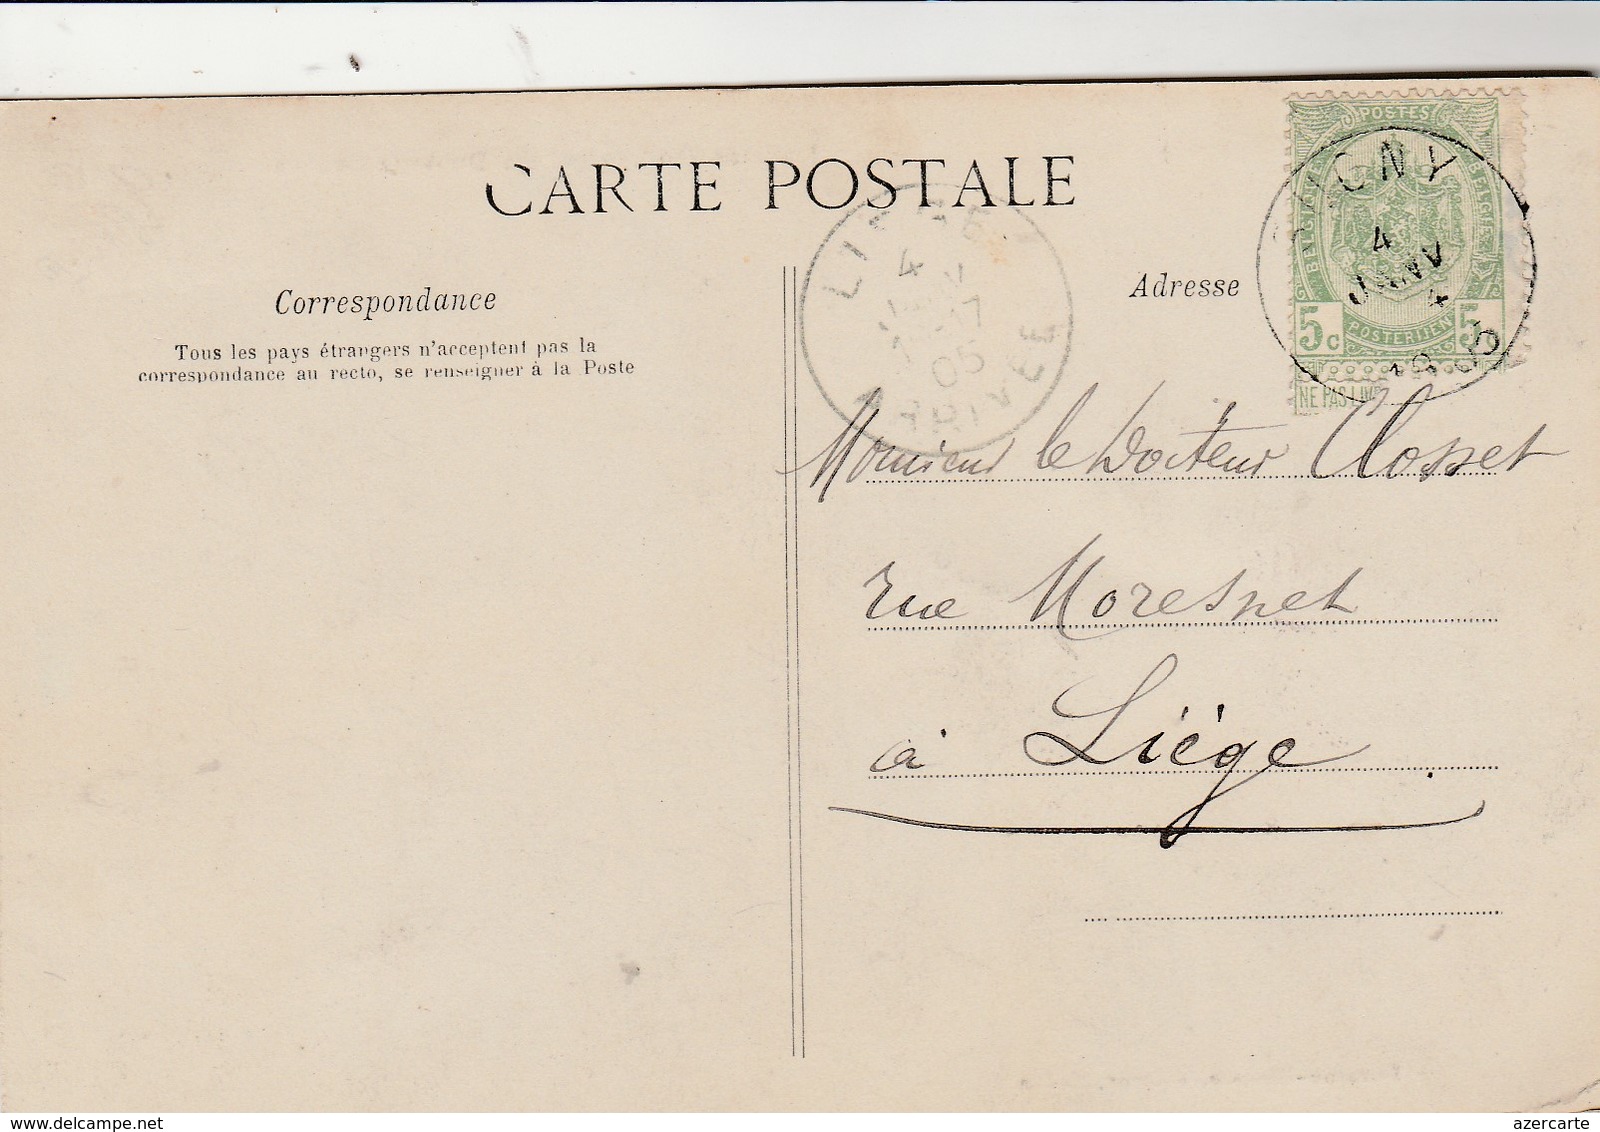 CARTE POSTALE
POSTES
BELGIQUE
BELGIE
5c
POSTERIJEN
5c
NE PAS LIV
4
JANV
4
LIEGE
4
05
Correspondance
Tous les pays étrangers n'acceptent pas la
correspondance au recto, se renseigner à la Poste
Adresse
Monsieur le Docteur Closset
rue Moresnet
à Liège
www.delcampe.net
azercarte